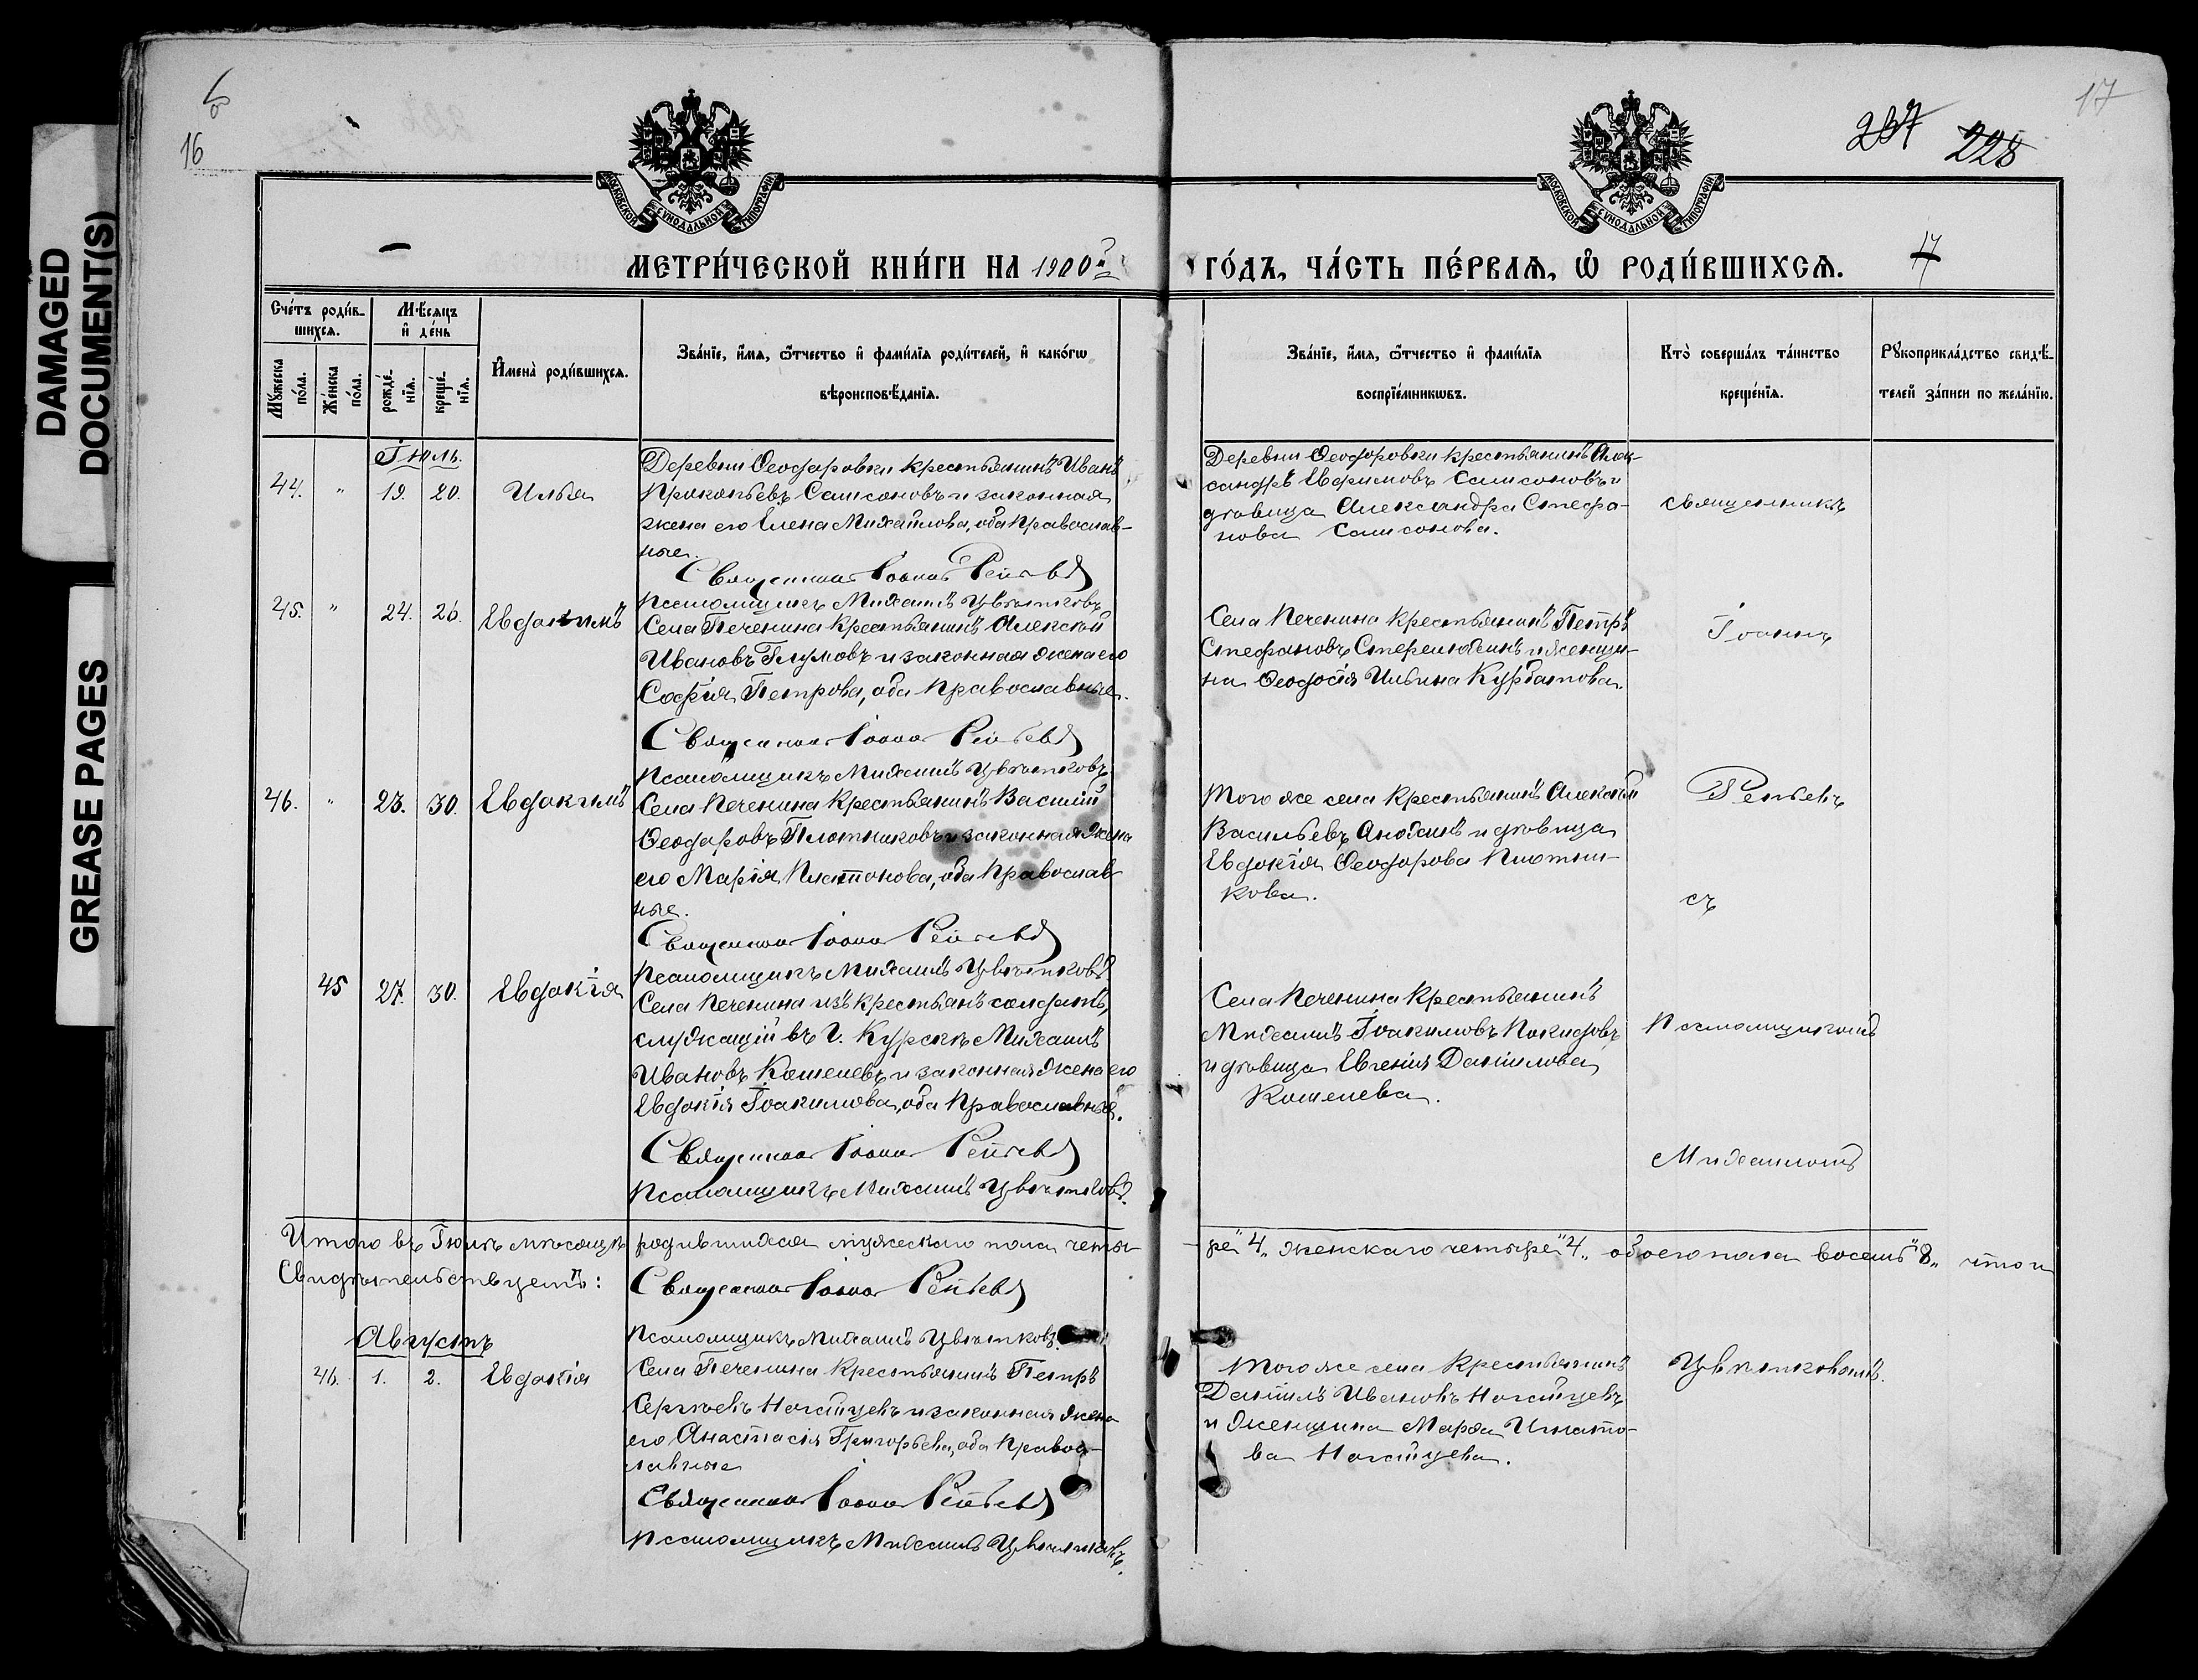 DAMAGED
DOCUMENT(S)
GREASE PAGES
16
17
МОСКОВСКОЙ СУНОДАЛЬНОЙ ТИПОГРАФІИ
МОСКОВСКОЙ СУНОДАЛЬНОЙ ТИПОГРАФІИ
237 228
МЕТРИ́ЧЕСКОЙ КНИ́ГИ НА 1900й
ГО́ДЪ, ЧА́СТЬ ПЕ́РВАѦ, Ѡ҆ РОДИ́ВШИХСѦ.
17
Сче́тъ роди́в-
шихсѧ.
Мꙋ́жеска
по́ла.
Же́нска
по́ла.
Мѣ́сѧцъ
и҆ де́нь
рожде́-
нїѧ.
креще́-
нїѧ.
И҆мена̀ роди́вшихсѧ.
Зва́нїе, и҆́мѧ, ѻ҆́тчество и҆ фами́лїѧ роди́телей, и҆ како́гѡ
вѣроисповѣ́данїѧ.
Зва́нїе, и҆́мѧ, ѻ҆́тчество и҆ фами́лїѧ
воспрїе́мникѡвъ.
Кто̀ соверша́лъ та́инство
креще́нїѧ.
Рꙋкоприкла́дство свидѣ́-
телей за́писи по жела́нїю.
Іюль.
44. " 19. 20. Илья
Деревни Ѳеодоровки крестьянинъ Иванъ
Прокопьевъ Самсоновъ и законная
жена его Елена Михайлова, оба православ-
ные.
Священникъ Іоаннъ Рептьевъ
Псаломщикъ Михаилъ Цвѣтковъ
Деревни Ѳеодоровки крестьянинъ Алек-
сандръ Ефимовъ Самсоновъ и
дѣвица Александра Стефа-
нова Самсонова.
священникъ
45. " 24. 26. Евдокимъ
Села Печенина крестьянинъ Алексѣй
Ивановъ Глумовъ и законная жена его
Софія Петрова, оба православные.
Священникъ Іоаннъ Рептьевъ
Псаломщикъ Михаилъ Цвѣтковъ
Села Печенина крестьянинъ Петръ
Стефановъ и женщи-
на Ѳеодосія Ильина Курбатова.
Іоаннъ
46. " 23. 30. Евдокимъ
Села Печенина крестьянинъ Василій
Ѳеодоровъ Плотниковъ и законная жена
его Марія Платонова, оба православ-
ные.
Священникъ Іоаннъ Рептьевъ
Псаломщикъ Михаилъ Цвѣтковъ
Того же села крестьянинъ Алексѣй
Васильевъ и дѣвица
Евдокія Ѳеодорова Плотни-
кова.
Рептьевъ
съ
45 27. 30. Евдокія
Села Печенина изъ крестьянъ солдатъ,
служащій въ г. Курскѣ Михаилъ
Ивановъ Кошелевъ и законная жена его
Евдокія Іоакимова, оба православные.
Священникъ Іоаннъ Рептьевъ
Псаломщикъ Михаилъ Цвѣтковъ
Села Печенина крестьянинъ
Михаилъ Іоакимовъ
и дѣвица Евгенія Даніилова
Кошелева.
Псаломщикомъ
Михаиломъ
Итого въ Іюлѣ мѣсяцѣ родившихся мужескаго пола четы-
ре "4" женскаго четыре "4" обоего пола восемь "8" что и
Свидѣтельствуемъ:
Священникъ Іоаннъ Рептьевъ
Псаломщикъ Михаилъ Цвѣтковъ
Августъ
46. 1. 2. Евдокія
Села Печенина крестьянинъ Петръ
Сергѣевъ Ногайцевъ и законная жена
его Анастасія Григорьева, оба право-
славные
Священникъ Іоаннъ Рептьевъ
Псаломщикъ Михаилъ Цвѣтковъ.
Того же села крестьянинъ
Даніилъ Ивановъ Ногайцевъ
и женщина Марѳа Игнато-
ва Ногайцева.
Цвѣтковымъ.